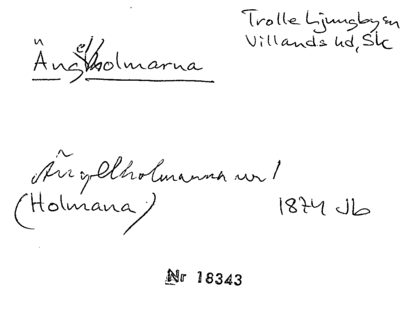 Trolle Ljungby sn
Villands hd, Sk
Ängelholmarna
Ängelholmarna nr 1
(Holmana)
1874 Jb
Nr 18343